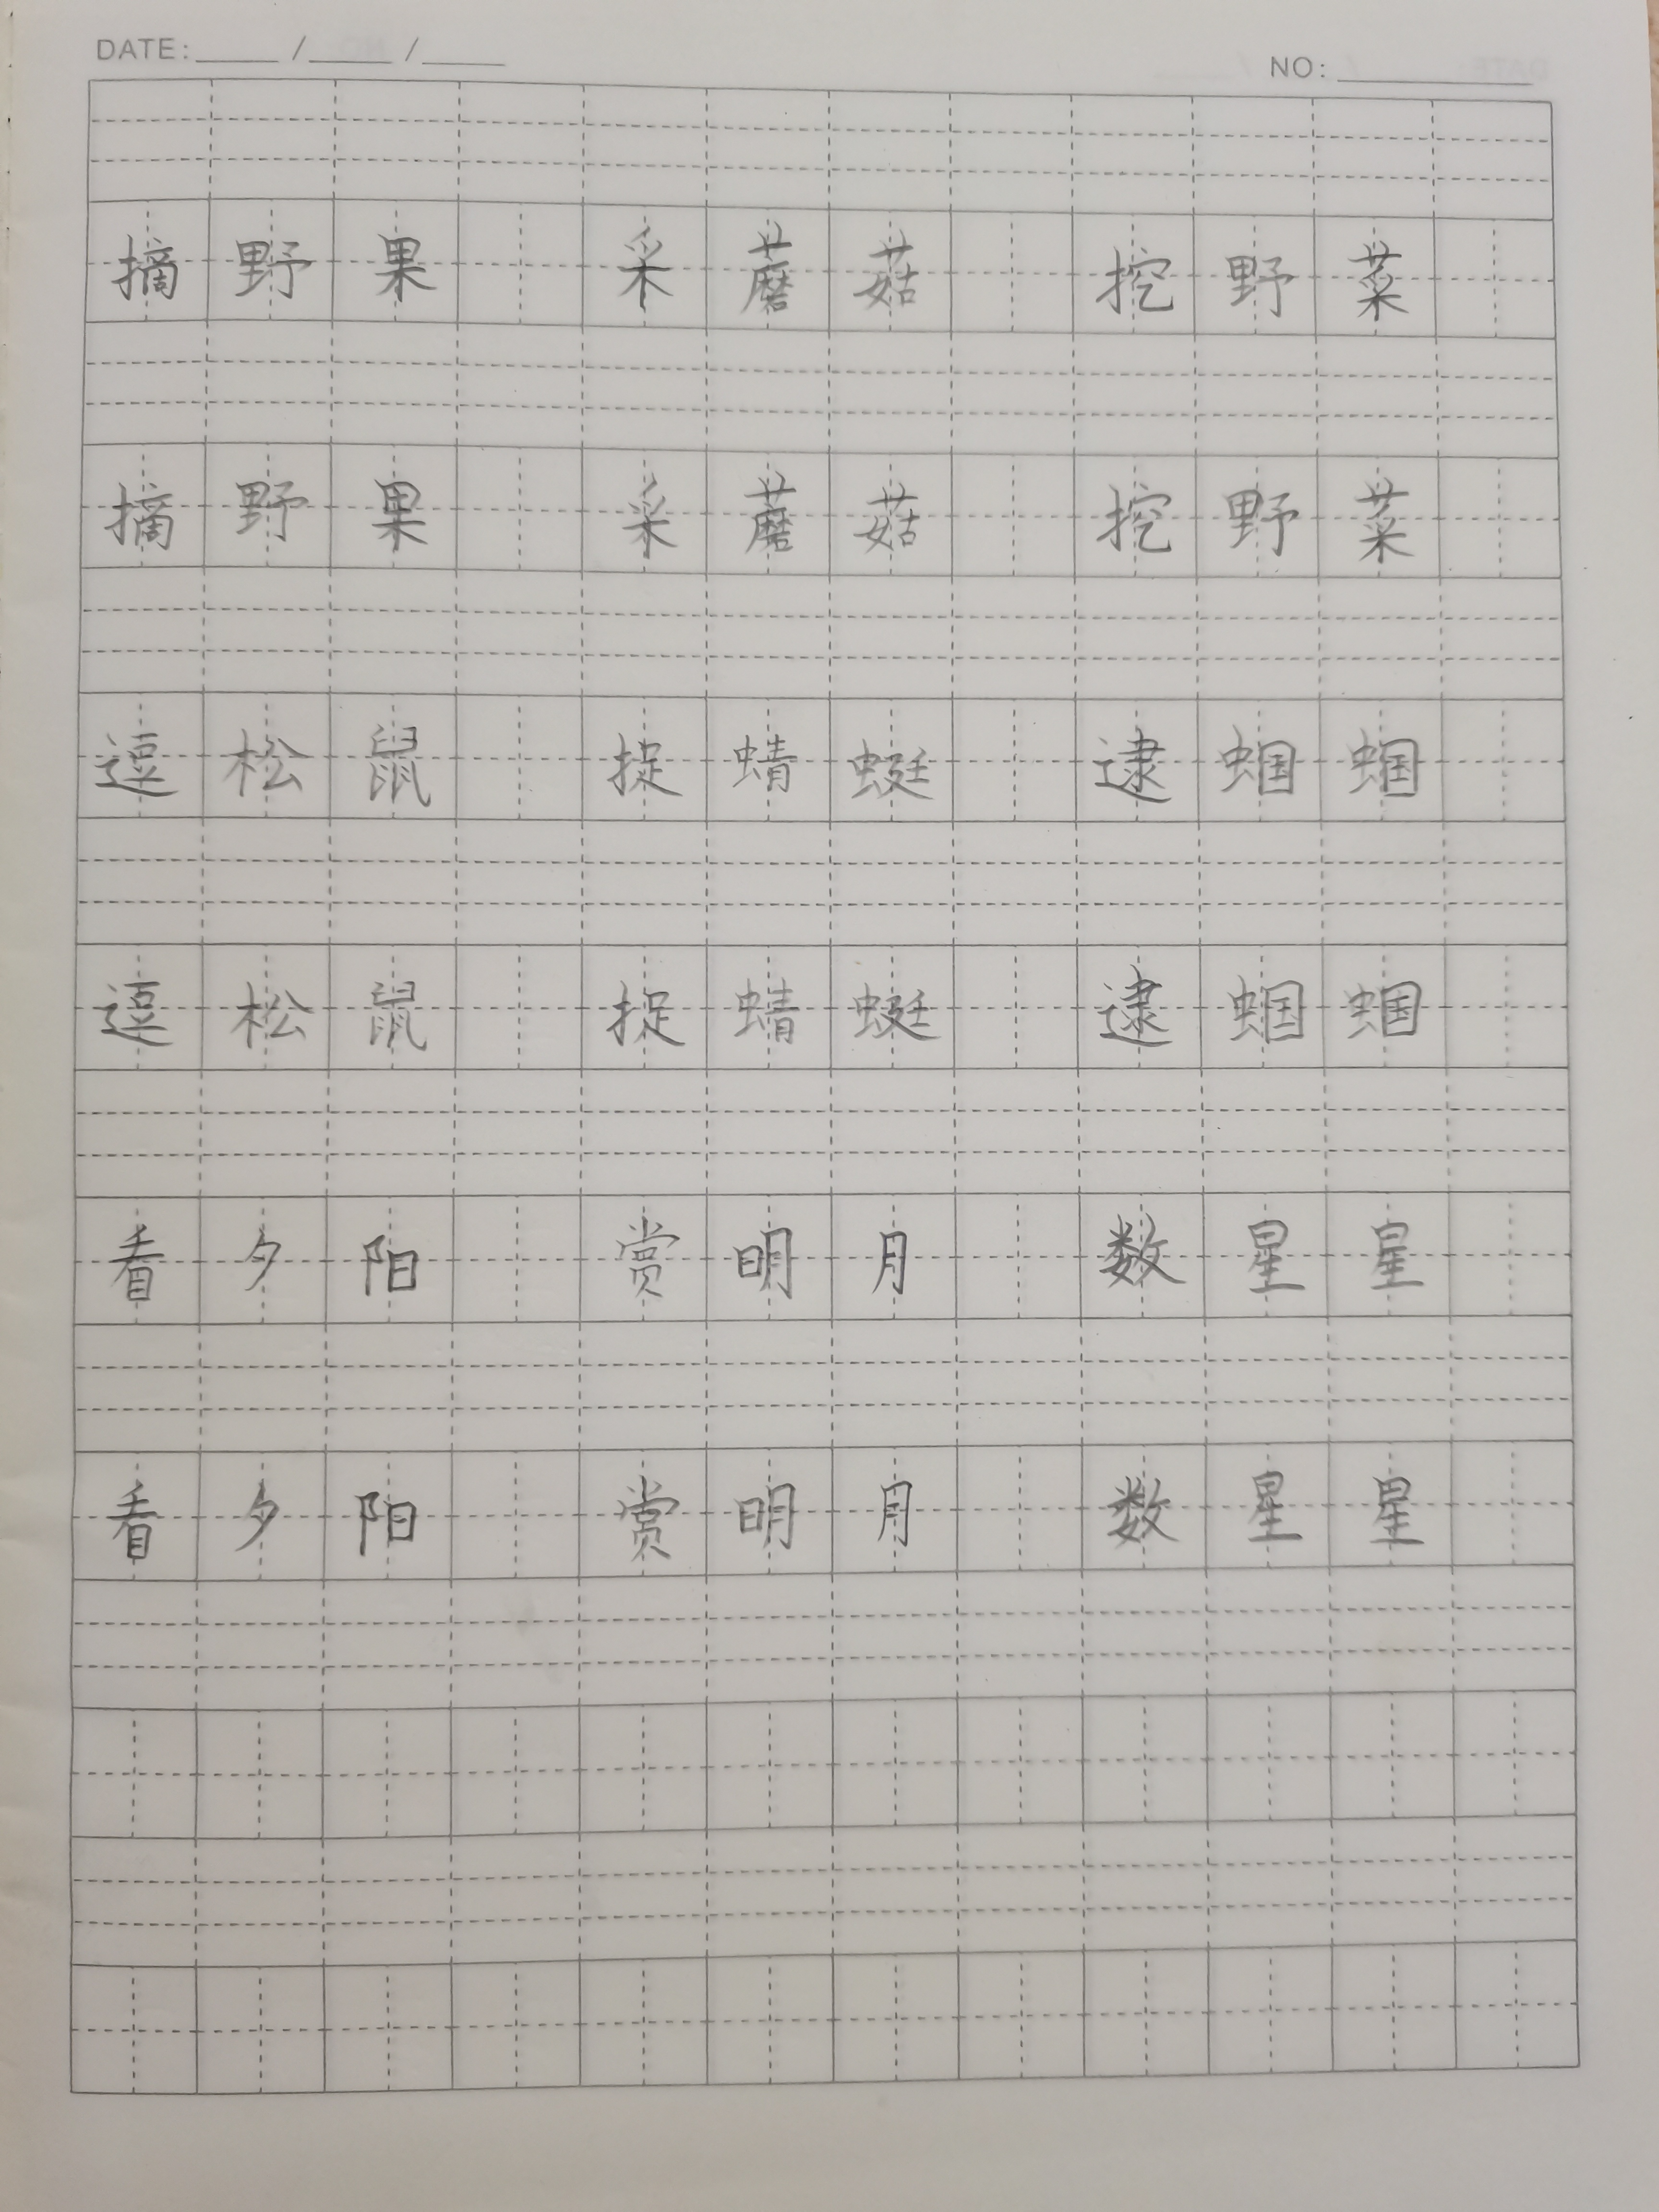 DATE:____/____/____ NO:________
摘野果 采蘑菇 挖野菜
摘野果 采蘑菇 挖野菜
逗松鼠 捉蜻蜓 逮蝈蝈
逗松鼠 捉蜻蜓 逮蝈蝈
看夕阳 赏明月 数星星
看夕阳 赏明月 数星星